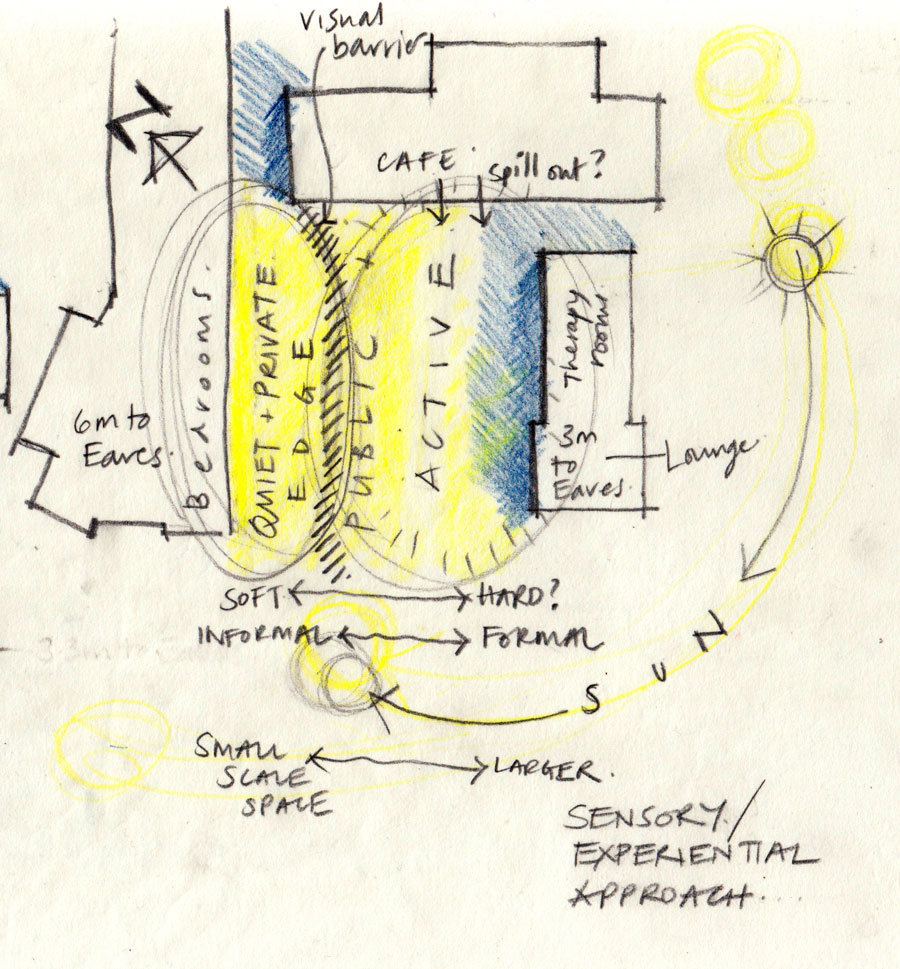 visual
barrier
CAFE
spill out?
N
Bedrooms.
QUIET + PRIVATE
EDGE
PUBLIC +
ACTIVE
Therapy
rooms.
6m to
Eaves.
3m
to
Eaves.
Lounge.
SOFT
HARD?
INFORMAL
FORMAL
SUN
SMALL
SCALE
SPACE
LARGER.
SENSORY/
EXPERIENTIAL
APPROACH....